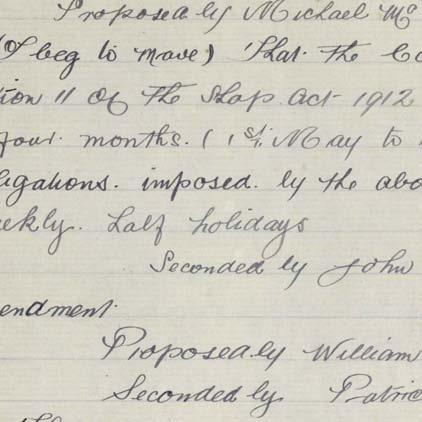 Proposed by Michael Mc
(I beg to move) That the Co
tion 11 of the Shop Act 1912
four months. (1st. May to
ligations. imposed. by the abo
eekly. half holidays
Seconded by John
endment.
Proposed by William
Seconded by Patric